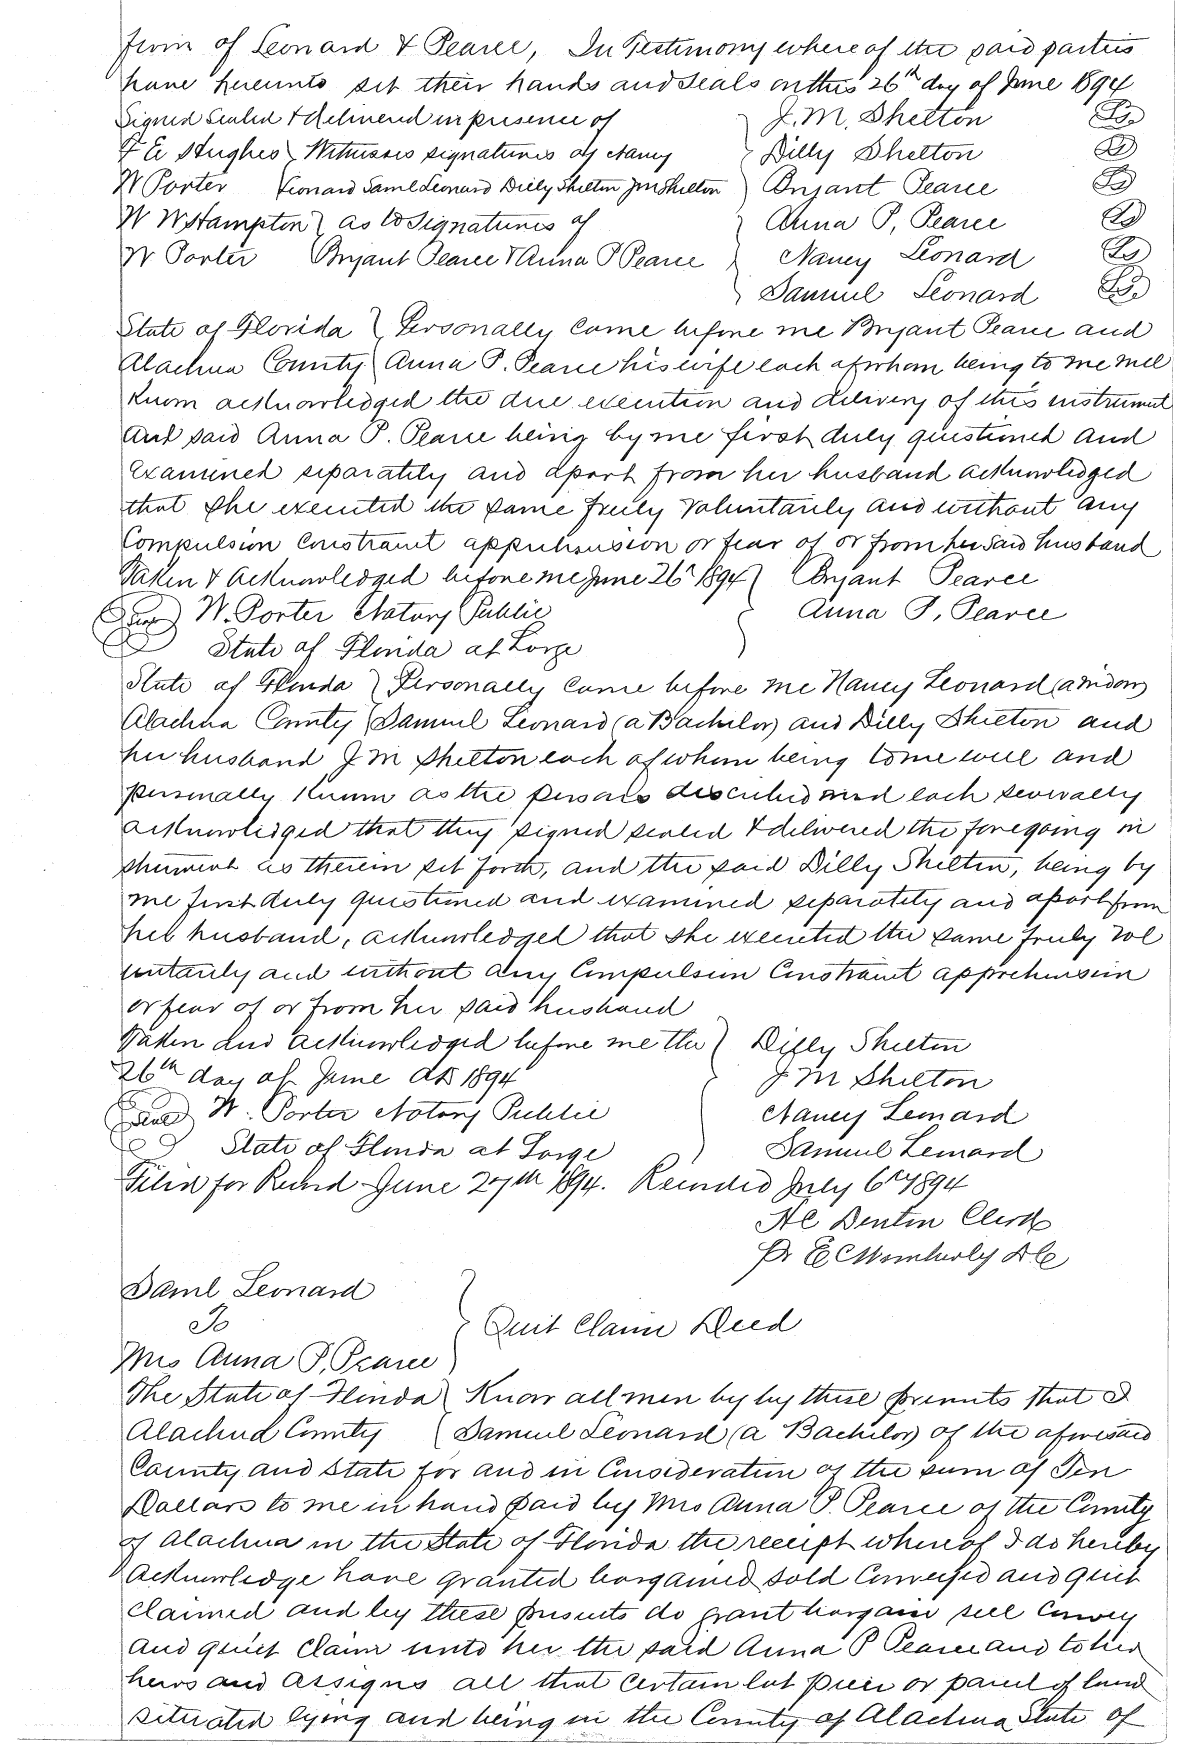 firm of Leonard & Pearce, In Testimony where of the said parties
have hereunto set their hands and seals on this 26th day of June 1894
Signed Sealed & delivered in presence of } J. M. Shelton
F E Hughes } Witnesses signatures of Nancy } Dilly Shelton
W Porter Leonard Saml Leonard Dilly Shelton J M Shelton } Bryant Pearce
W W Hampton } as to Signatures of } Anna P. Pearce
W Porter Bryant Pearce & Anna P Pearce } Nancy Leonard
Samuel Leonard
State of Florida } Personally came before me Bryant Pearce and
Alachua County } Anna P. Pearce his wife each of whom being to me well
Known acknowledged the due execution and delivery of this instrument
And said Anna P. Pearce being by me first duly questioned and
Examined separately and apart from her husband acknowledged
that she executed the same freely voluntarily and without any
Compulsion Constraint apprehension or fear of or from her said husband
Taken & Acknowledged before me June 26th 1894 } Bryant Pearce
Seal W. Porter Notary Public Anna P. Pearce
State of Florida at Large
State of Florida } Personally came before me Nancy Leonard (a widow)
Alachua County } Samuel Leonard (a Bachelor) and Dilly Shelton and
her husband J M Shelton each of whom being to me well and
personally Known as the persons described and each severally
acknowledged that they signed sealed & delivered the foregoing in
strument as therein set forth, and the said Dilly Shelton, being by
me first duly questioned and examined separately and apart from
her husband, acknowledged that she executed the same freely vol
untarily and without any Compulsion Constraint apprehension
or fear of or from her said husband
Taken and acknowledged before me the } Dilly Shelton
26th day of June AD 1894 J M Shelton
Seal W. Porter Notary Public Nancy Leonard
State of Florida at Large Samuel Leonard
Filed for Record June 27th 1894. Recorded July 6th 1894
Clerk
DC
Saml Leonard
To } Quit Claim Deed
Mrs Anna P. Pearce
The State of Florida } Know all men by by these presents that I
Alachua County } Samuel Leonard (a Bachelor) of the aforesaid
County and State for and in Consideration of the sum of Ten
Dollars to me in hand paid by Mrs Anna P. Pearce of the County
of Alachua in the State of Florida the receipt whereof I do hereby
Acknowledge have granted bargained sold Conveyed and quit
claimed and by these presents do grant bargain sell Convey
and quiet Claim unto her the said Anna P Pearce and to her
heirs and assigns all that certain lot piece or parcel of land
situated lying and being in the County of Alachua State of